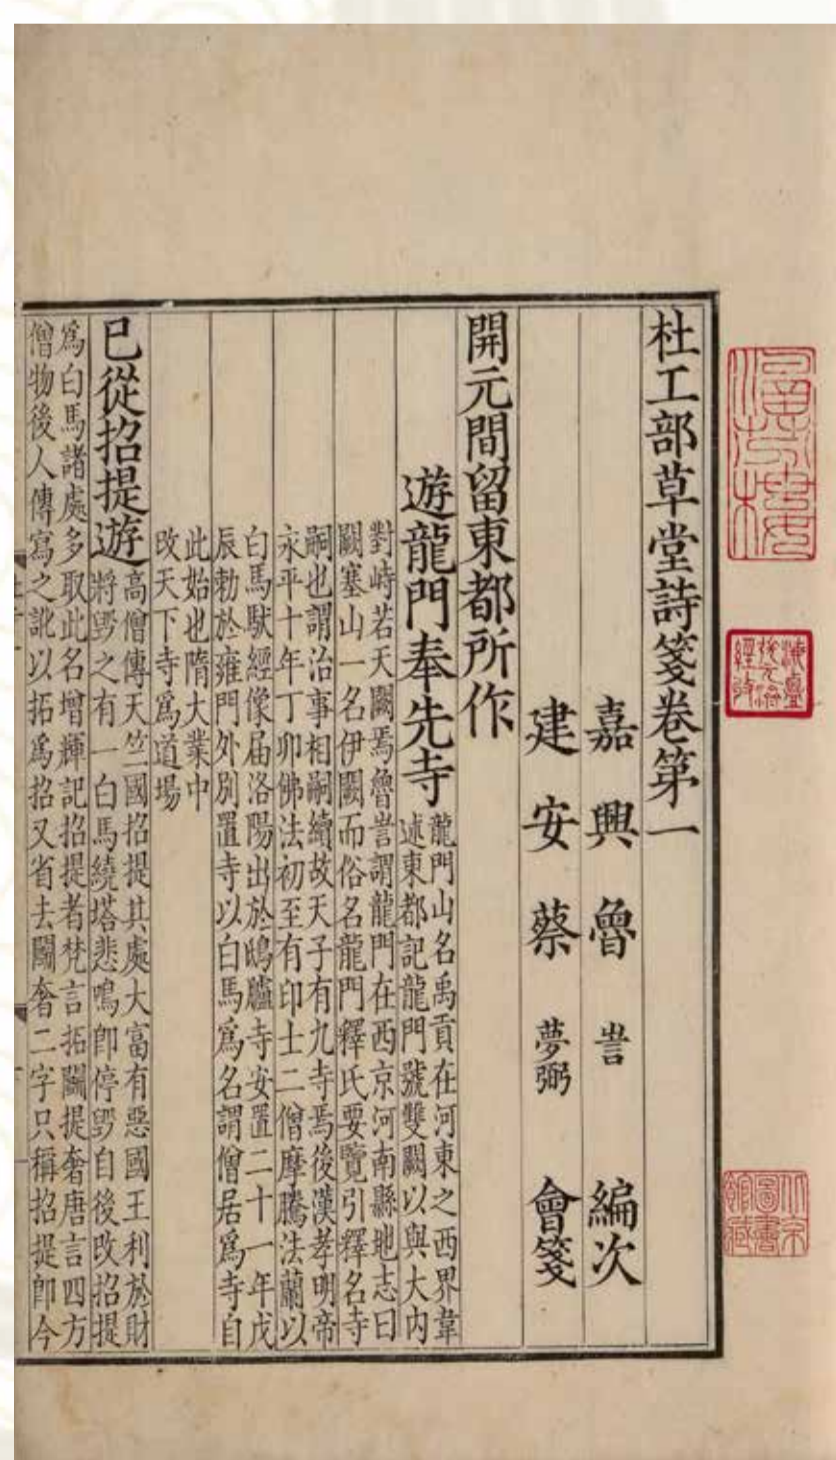 杜工部草堂詩箋卷第一
嘉興魯訔編次
建安蔡夢弼會箋
開元間留東都所作
遊龍門奉先寺
龍門山名禹貢在河東之西界韋
述東都記龍門號雙闕以與大内
對峙若天闕焉魯訔謂龍門在西京河南縣地志曰
闕塞山一名伊闕而俗名龍門釋氏要覽引釋名寺
嗣也謂治事相嗣續故天子有九寺焉後漢孝明帝
永平十年丁卯佛法初至有印士二僧摩騰法蘭以
白馬馱經像届洛陽出於鴻臚寺安置二十一年戊
辰勑於雍門外別置寺以白馬爲名謂僧居爲寺自
此始也隋大業中
改天下寺爲道場
已從招提遊
高僧傳天竺國招提其處大富有惡國王利於財
將毀之有一白馬繞塔悲鳴即停毀自後改招提
爲白馬諸處多取此名增輝記招提者梵言拓鬭提奢唐言四方
僧物後人傳寫之訛以拓爲招又省去鬭奢二字只稱招提即今
北京
圖書
館藏